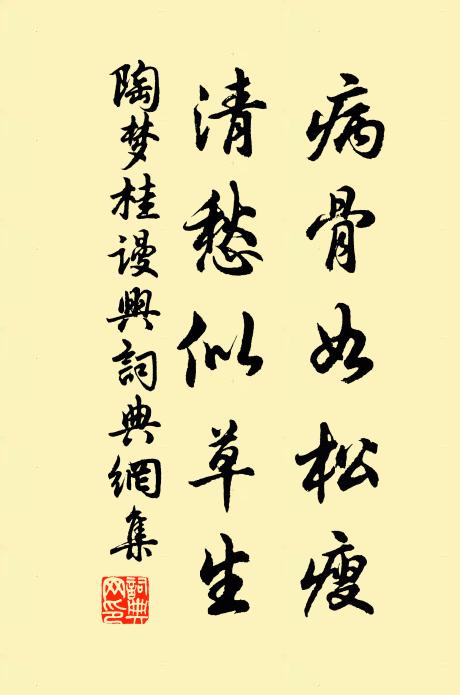 病骨如松瘦
清愁似草生
陶梦桂谩興詞典網集
詞典網印